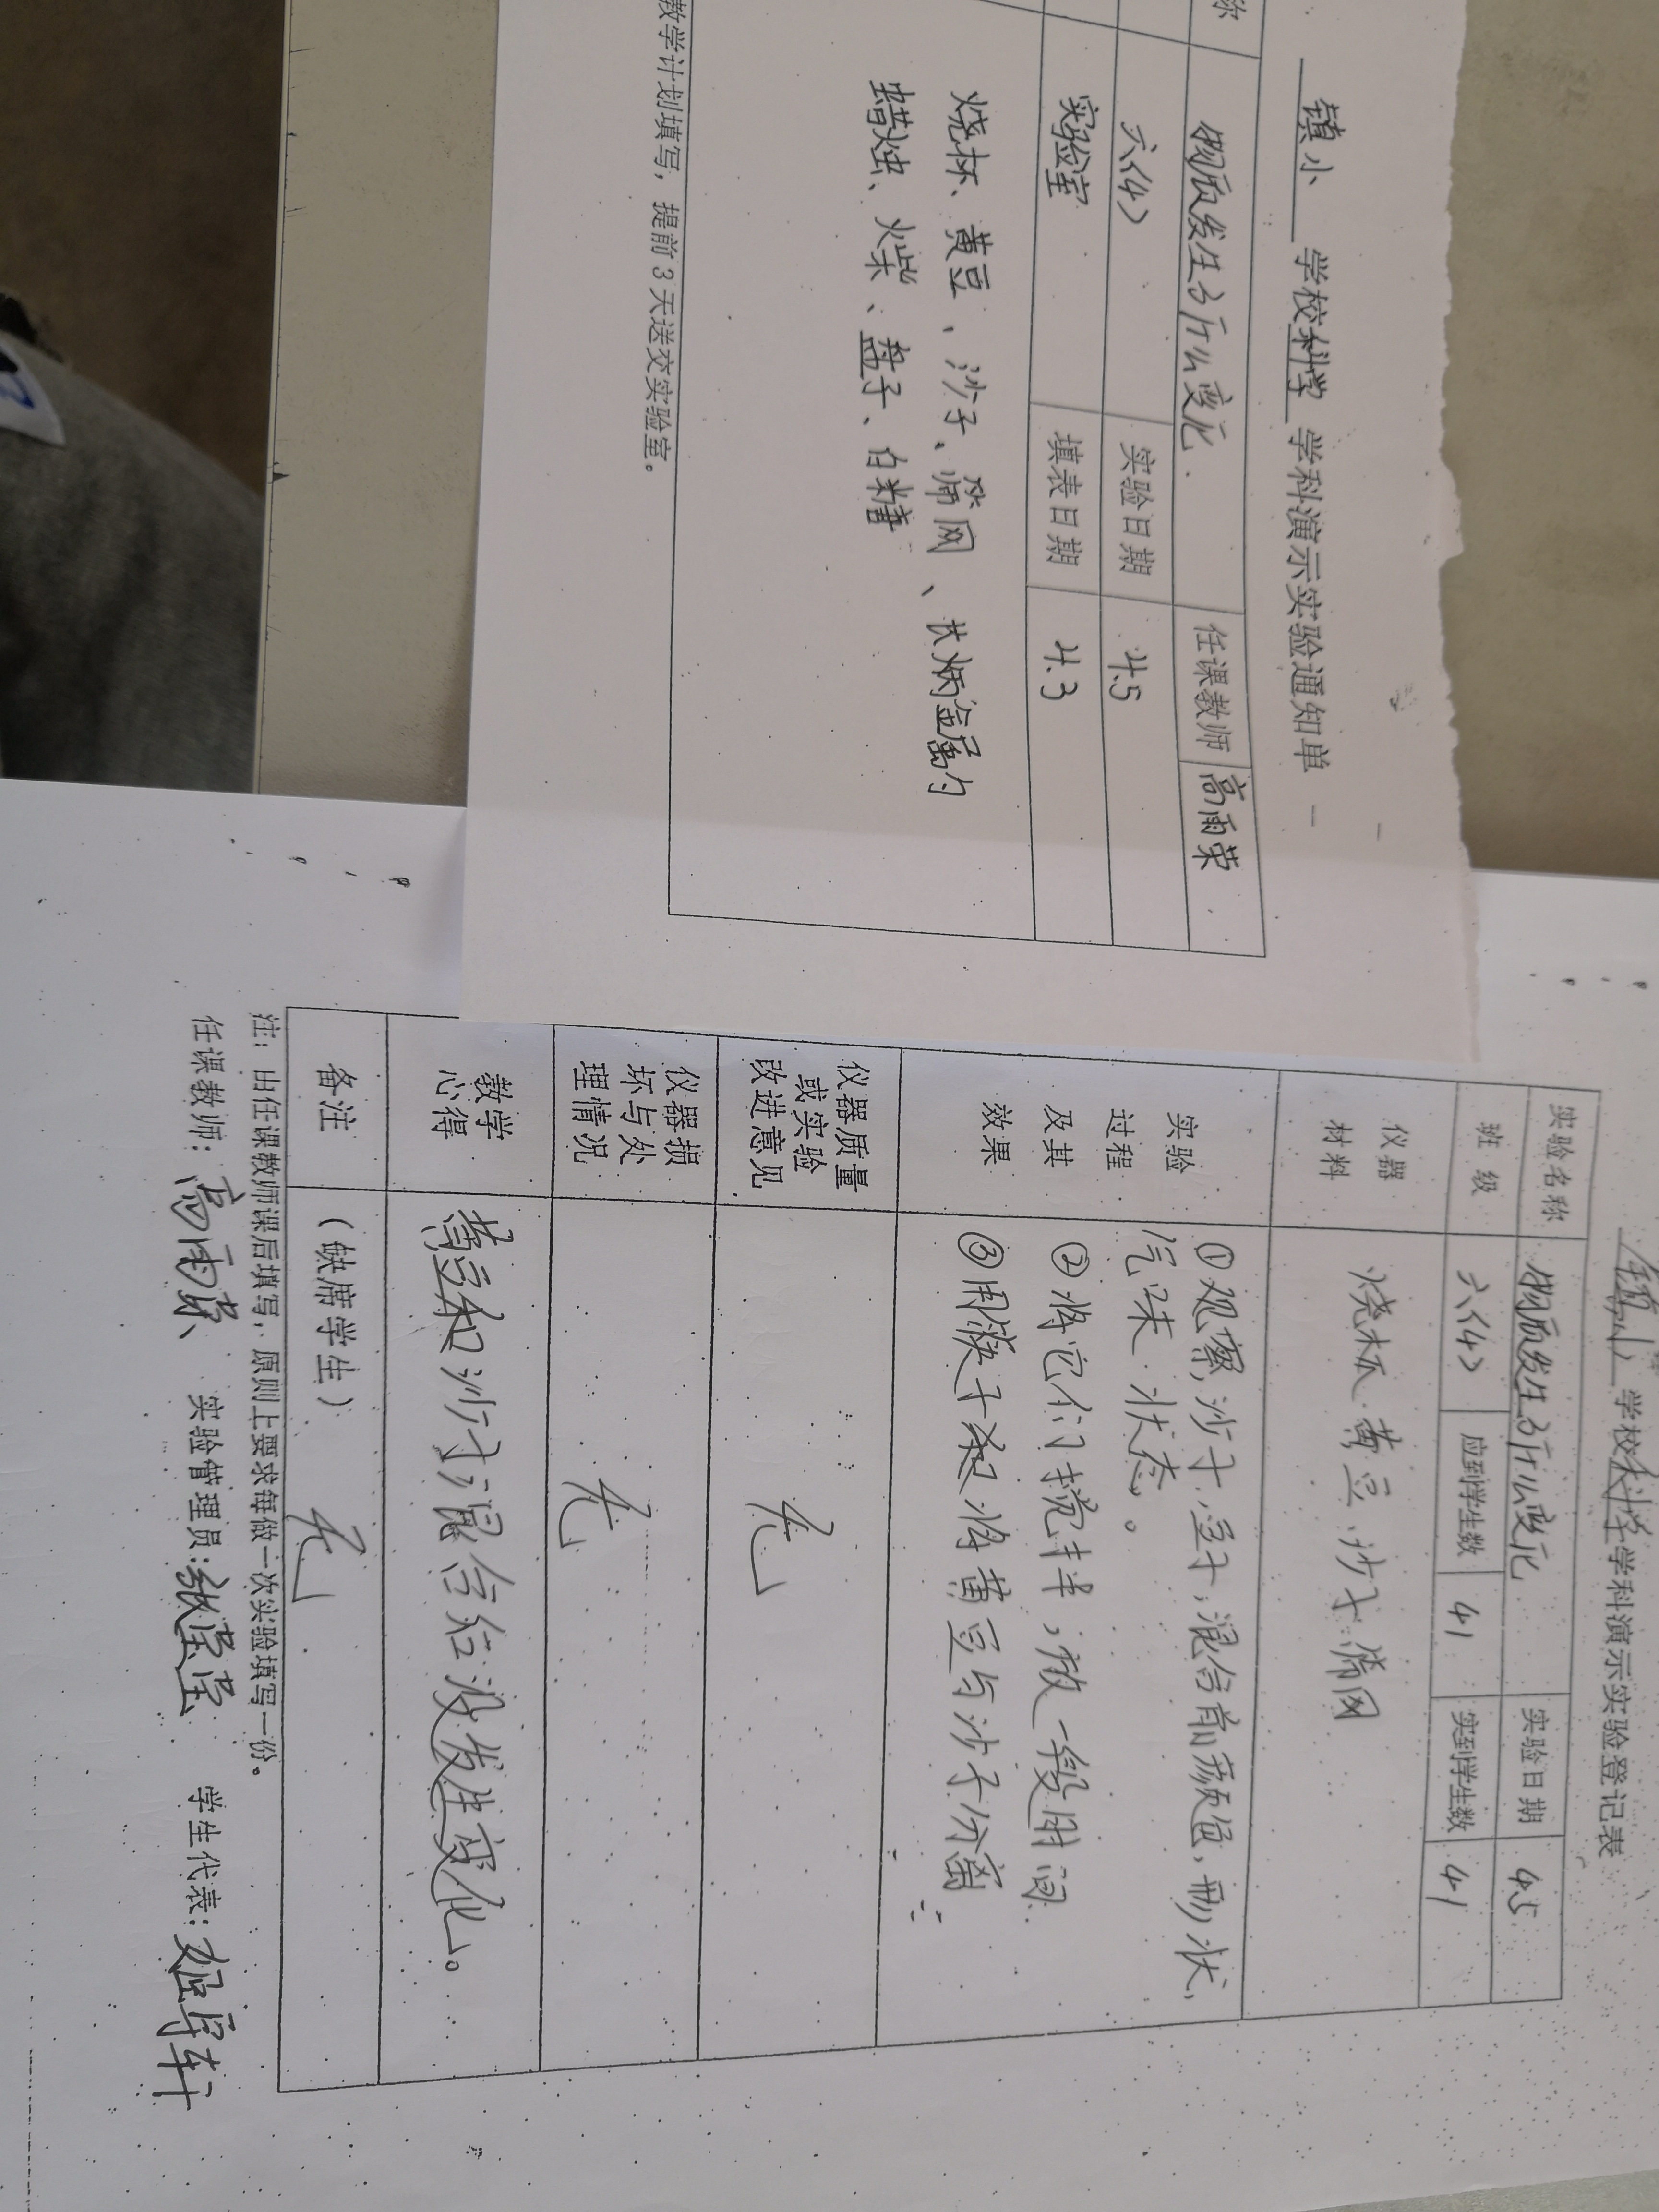 镇小 学校科学 学科演示实验通知单
称 物质发生了什么变化 任课教师 高雨荣
六(4) 实验日期 4.5
实验室 填表日期 4.3
烧杯、黄豆、沙子、筛网、长柄金属勺
蜡烛、火柴、盘子、白糖
教学计划填写，提前3天送交实验室。
镇小 学校科学学科演示实验登记表
实验名称 物质发生了什么变化 实验日期 4.5
班 级 六(4) 应到学生数 41 实到学生数 41
仪器
材料
烧杯 黄豆 沙子 筛网
实验
过程
及其
效果
①观察沙子、豆子，混合前颜色，形状，
气味、状态。
②将它们搅拌，放一段时间
③用筷子和将黄豆与沙子分离
仪器质量
或实验
改进意见
无
仪器损
坏与处
理情况
无
教学
心得
黄豆和沙子混合后没发生变化。
备注 (缺席学生) 无
注：由任课教师课后填写，原则上要求每做一次实验填写一份。
任课教师：高雨荣 实验管理员：张莹莹 学生代表：